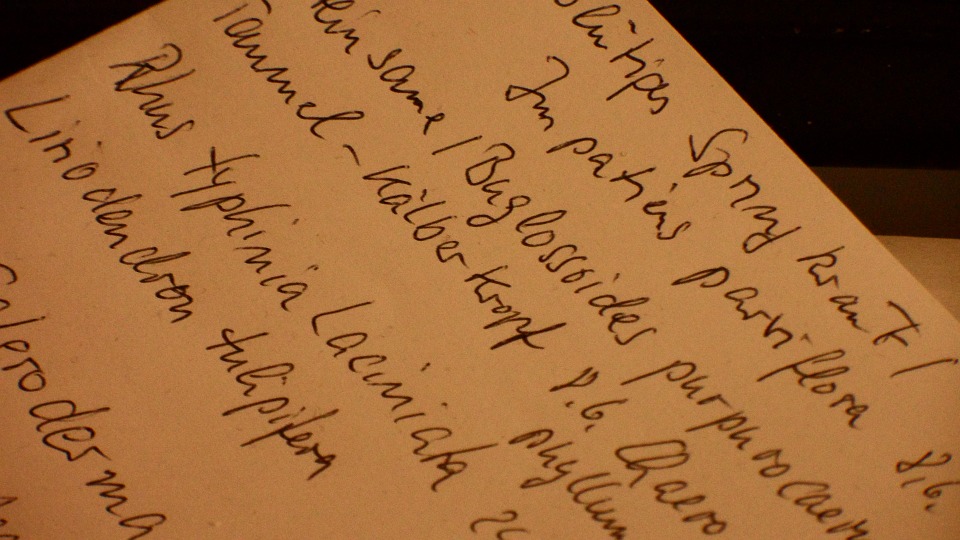 Springkraut /
Impatiens parviflora 8.6.
same / Buglossoides purpurocaer
Taumel-Kälberkropf 8.6. Chaero
phyllum
Rhus typhinia Laciniata
Liriodendron tulipifera
leroderma